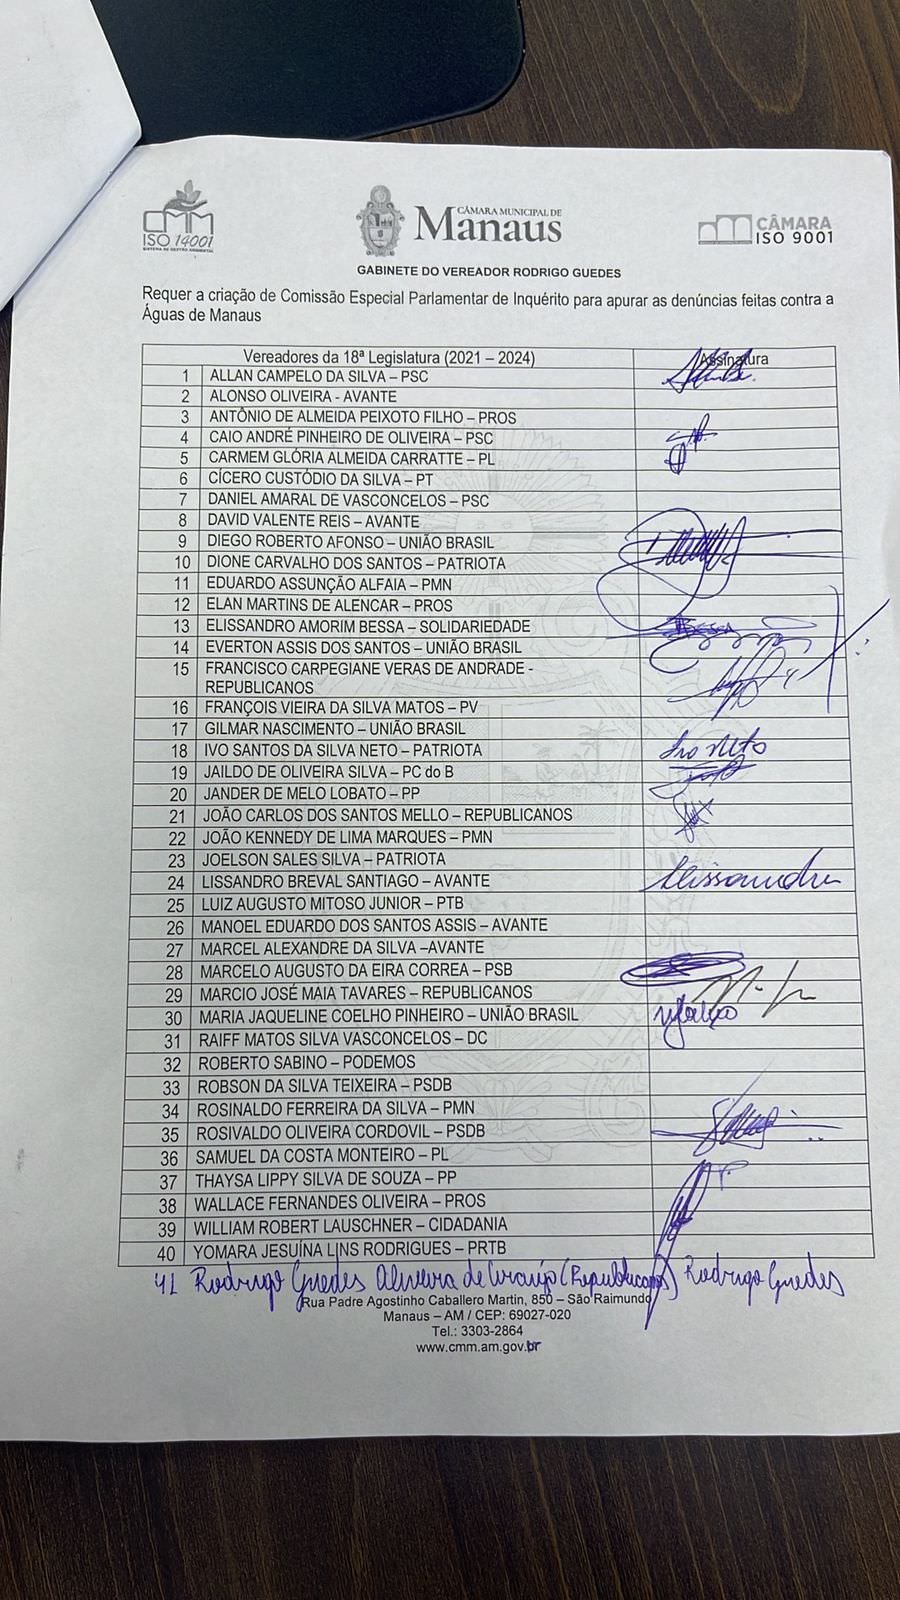 CMM
ISO 14001
SISTEMA DE GESTÃO AMBIENTAL
CÂMARA MUNICIPAL DE
Manaus
CÂMARA
ISO 9001
GABINETE DO VEREADOR RODRIGO GUEDES
Requer a criação de Comissão Especial Parlamentar de Inquérito para apurar as denúncias feitas contra a
Águas de Manaus
Vereadores da 18ª Legislatura (2021 – 2024) Assinatura
1 ALLAN CAMPELO DA SILVA – PSC
2 ALONSO OLIVEIRA - AVANTE
3 ANTÔNIO DE ALMEIDA PEIXOTO FILHO – PROS
4 CAIO ANDRÉ PINHEIRO DE OLIVEIRA – PSC
5 CARMEM GLÓRIA ALMEIDA CARRATTE – PL
6 CÍCERO CUSTÓDIO DA SILVA – PT
7 DANIEL AMARAL DE VASCONCELOS – PSC
8 DAVID VALENTE REIS – AVANTE
9 DIEGO ROBERTO AFONSO – UNIÃO BRASIL
10 DIONE CARVALHO DOS SANTOS – PATRIOTA
11 EDUARDO ASSUNÇÃO ALFAIA – PMN
12 ELAN MARTINS DE ALENCAR – PROS
13 ELISSANDRO AMORIM BESSA – SOLIDARIEDADE
14 EVERTON ASSIS DOS SANTOS – UNIÃO BRASIL
15 FRANCISCO CARPEGIANE VERAS DE ANDRADE -
REPUBLICANOS
16 FRANÇOIS VIEIRA DA SILVA MATOS – PV
17 GILMAR NASCIMENTO – UNIÃO BRASIL
18 IVO SANTOS DA SILVA NETO – PATRIOTA Ivo Neto
19 JAILDO DE OLIVEIRA SILVA – PC do B
20 JANDER DE MELO LOBATO – PP
21 JOÃO CARLOS DOS SANTOS MELLO – REPUBLICANOS
22 JOÃO KENNEDY DE LIMA MARQUES – PMN
23 JOELSON SALES SILVA – PATRIOTA
24 LISSANDRO BREVAL SANTIAGO – AVANTE
25 LUIZ AUGUSTO MITOSO JUNIOR – PTB
26 MANOEL EDUARDO DOS SANTOS ASSIS – AVANTE
27 MARCEL ALEXANDRE DA SILVA –AVANTE
28 MARCELO AUGUSTO DA EIRA CORREA – PSB
29 MARCIO JOSÉ MAIA TAVARES – REPUBLICANOS
30 MARIA JAQUELINE COELHO PINHEIRO – UNIÃO BRASIL
31 RAIFF MATOS SILVA VASCONCELOS – DC
32 ROBERTO SABINO – PODEMOS
33 ROBSON DA SILVA TEIXEIRA – PSDB
34 ROSINALDO FERREIRA DA SILVA – PMN
35 ROSIVALDO OLIVEIRA CORDOVIL – PSDB
36 SAMUEL DA COSTA MONTEIRO – PL
37 THAYSA LIPPY SILVA DE SOUZA – PP
38 WALLACE FERNANDES OLIVEIRA – PROS
39 WILLIAM ROBERT LAUSCHNER – CIDADANIA
40 YOMARA JESUÍNA LINS RODRIGUES – PRTB
41 Rodrigo Guedes Oliveira de Araujo (Republicanos) Rodrigo Guedes
Rua Padre Agostinho Caballero Martin, 850 – São Raimundo
Manaus – AM / CEP: 69027-020
Tel.: 3303-2864
www.cmm.am.gov.br